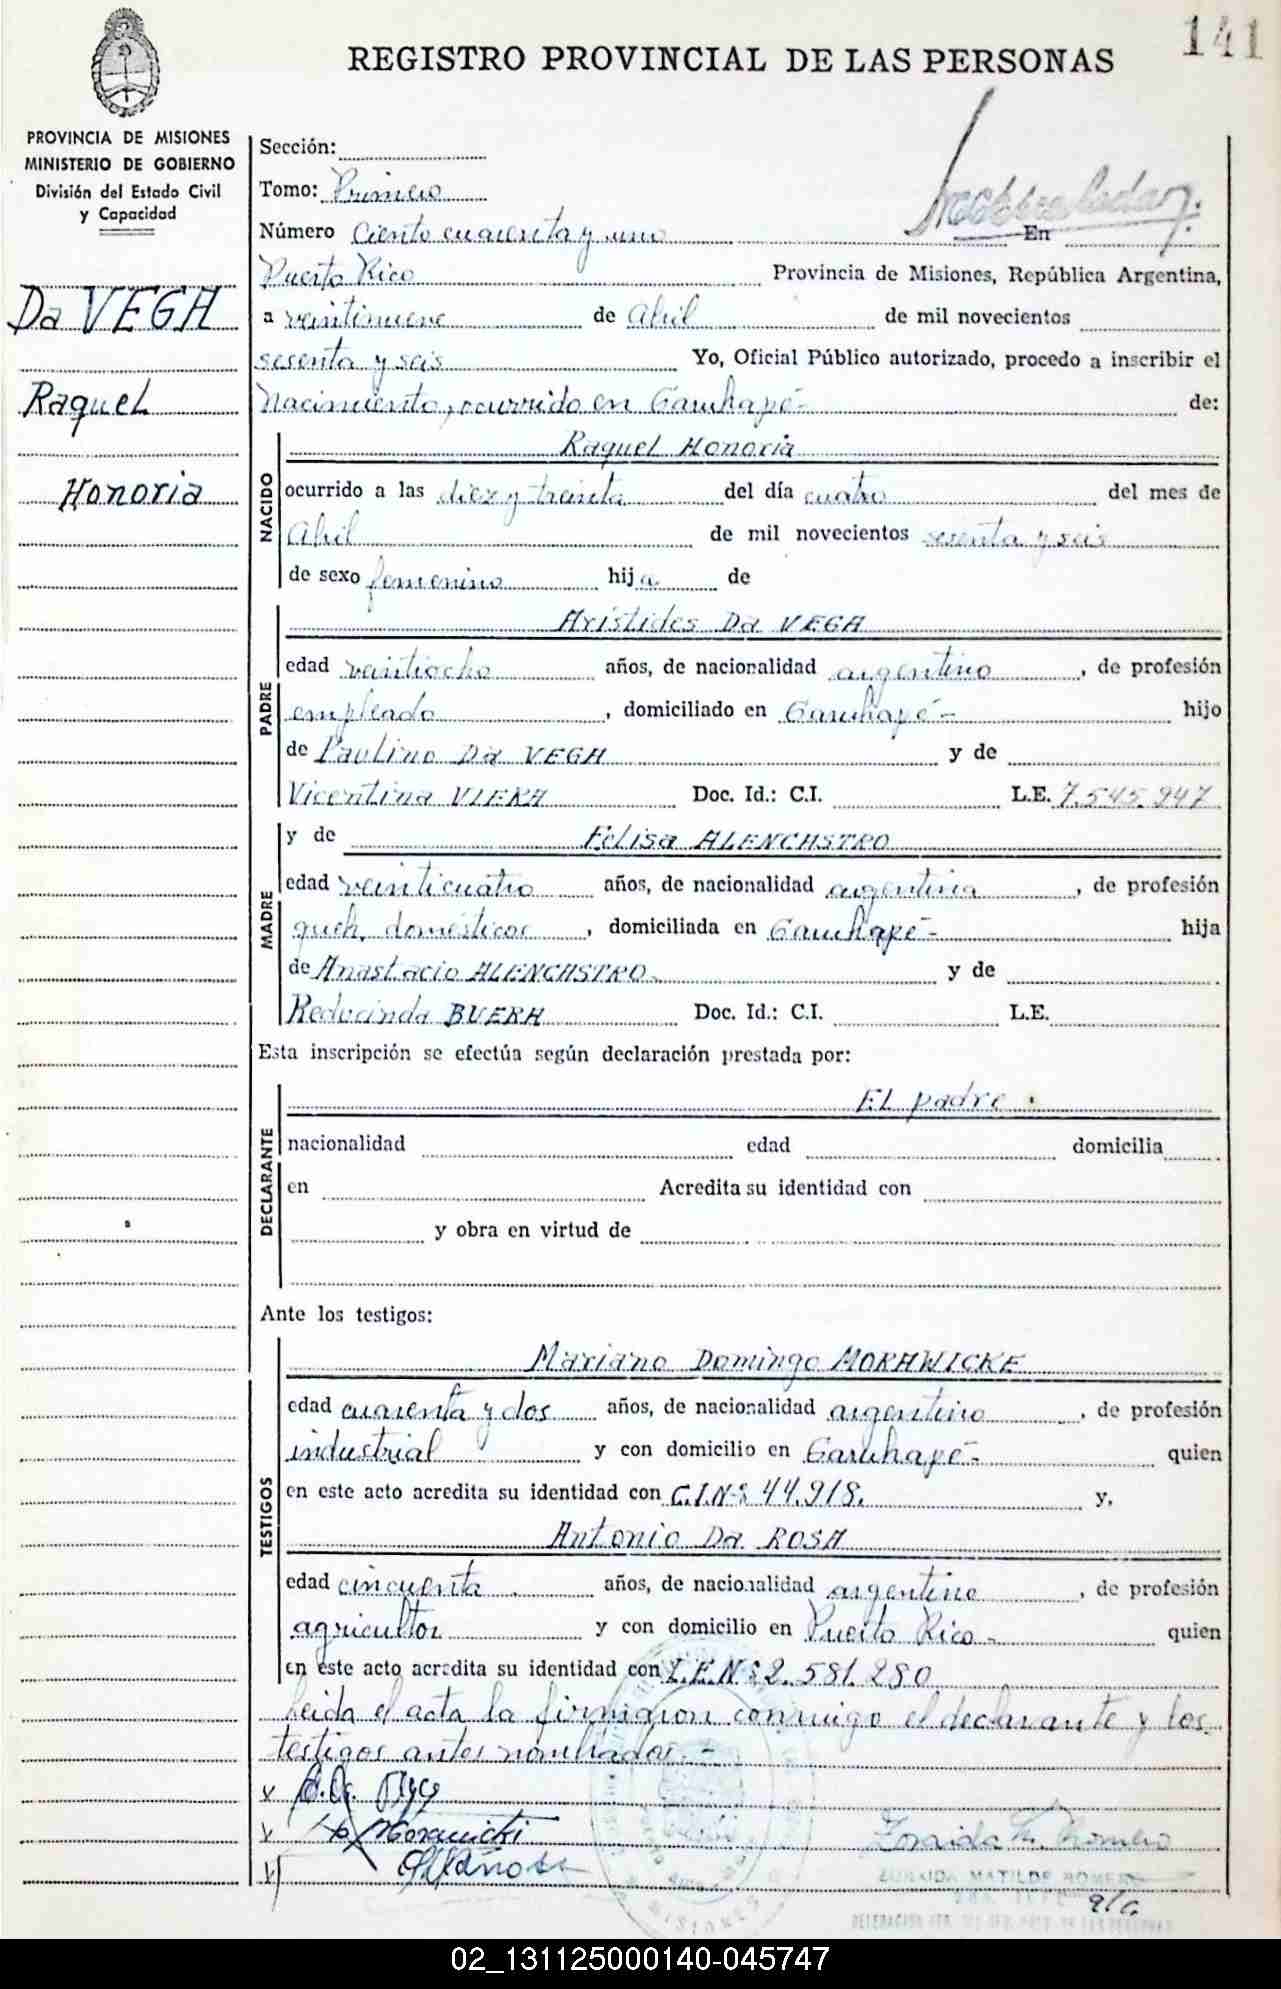 141
REGISTRO PROVINCIAL DE LAS PERSONAS
PROVINCIA DE MISIONES
MINISTERIO DE GOBIERNO
División del Estado Civil
y Capacidad
Da VEGA
Raquel
Honoria
Sección:
Tomo: Primero
Número Ciento cuarenta y uno En
Puerto Rico Provincia de Misiones, República Argentina,
a veintinueve de Abril de mil novecientos
sesenta y seis Yo, Oficial Público autorizado, procedo a inscribir el
Nacimiento, ocurrido en Garuhapé- de:
NACIDO
Raquel Honoria
ocurrido a las diez y treinta del día cuatro del mes de
Abril de mil novecientos sesenta y seis
de sexo femenino hija de
PADRE
Aristides Da VEGA
edad veintiocho años, de nacionalidad argentino, de profesión
empleado, domiciliado en Garuhapé- hijo
de Paulino Da VEGA y de
Vicentina VIERA Doc. Id.: C.I. L.E. 7.545.947
MADRE
y de Felisa ALENCASTRO
edad veinticuatro años, de nacionalidad argentina, de profesión
queh. domésticos, domiciliada en Garuhapé- hija
de Anastacio ALENCASTRO y de
Reducinda BUERA Doc. Id.: C.I. L.E.
Esta inscripción se efectúa según declaración prestada por:
DECLARANTE
El padre.
nacionalidad edad domicilia
en Acredita su identidad con
y obra en virtud de
Ante los testigos:
TESTIGOS
Mariano Domingo MORAWICKE
edad cuarenta y dos años, de nacionalidad argentino, de profesión
industrial y con domicilio en Garuhapé- quien
en este acto acredita su identidad con C.I.Nº 44.918. y,
Antonio Da ROSA
edad cincuenta años, de nacionalidad argentino, de profesión
agricultor y con domicilio en Puerto Rico- quien
en este acto acredita su identidad con L.E.Nº 2.581.280
Leida el acta la firmaron conmigo el declarante y los
testigos antes nombrados.-
x
x Morawicki
x
Zoraida M. Romero
ZORAIDA MATILDE ROMERO
a/c.
MISIONES
02_131125000140-045747